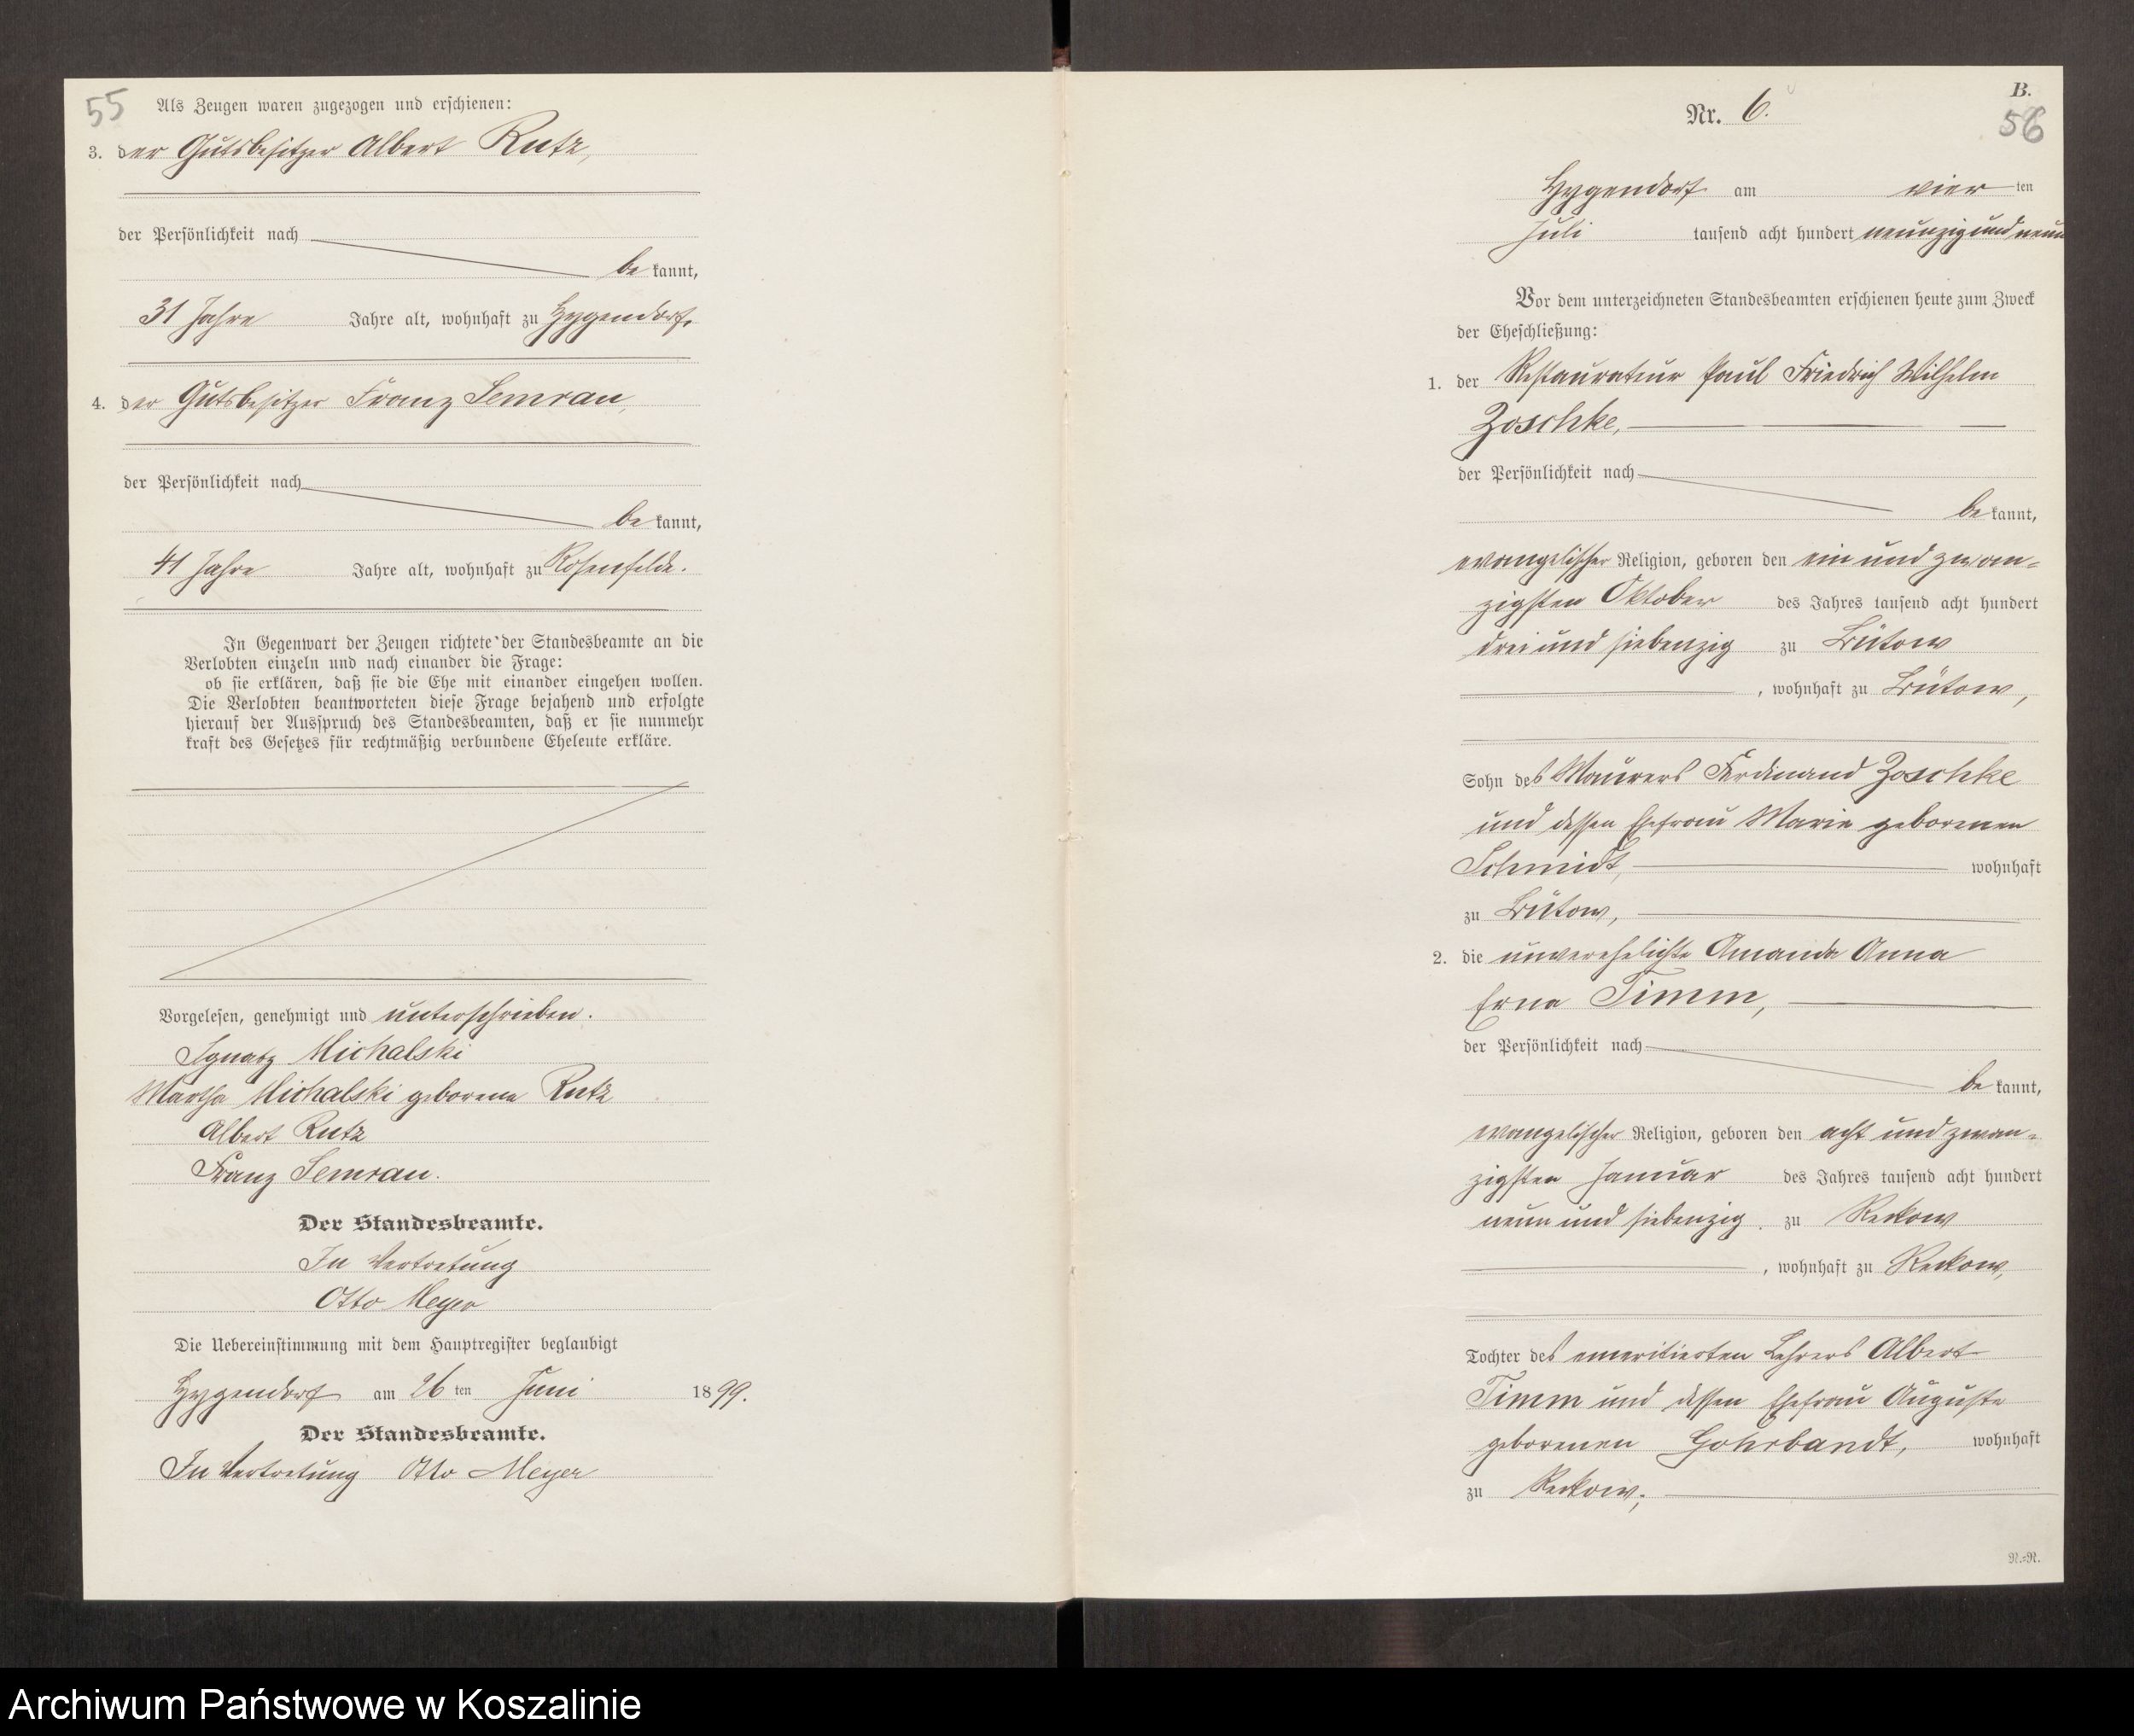 55
Als Zeugen waren zugezogen und erschienen:
3. der Gutsbesitzer Albert Rutz,
der Persönlichkeit nach
be kannt,
31 Jahre Jahre alt, wohnhaft zu Hygendorf,
4. der Gutsbesitzer Franz Semrau,
der Persönlichkeit nach
be kannt,
41 Jahre Jahre alt, wohnhaft zu Rosenfelde.
In Gegenwart der Zeugen richtete der Standesbeamte an die
Verlobten einzeln und nach einander die Frage:
ob sie erklären, daß sie die Ehe mit einander eingehen wollen.
Die Verlobten beantworteten diese Frage bejahend und erfolgte
hierauf der Ausspruch des Standesbeamten, daß er sie nunmehr
kraft des Gesetzes für rechtmäßig verbundene Eheleute erkläre.
Vorgelesen, genehmigt und unterschrieben.
Ignatz Michalski
Martha Michalski geborene Rutz
Albert Rutz
Franz Semrau.
Der Standesbeamte.
In Vertretung
Otto Meyer
Die Uebereinstimmung mit dem Hauptregister beglaubigt
Hygendorf am 26 ten Juni 1899.
Der Standesbeamte.
In Vertretung Otto Meyer
B.
Nr. 6.
56
Hygendorf am vier ten
Juli tausend acht hundert neunzig und neun
Vor dem unterzeichneten Standesbeamten erschienen heute zum Zweck
der Eheschließung:
1. der Restaurateur Paul Friedrich Wilhelm
Zoschke,
der Persönlichkeit nach
be kannt,
evangelischer Religion, geboren den ein und zwan=
zigsten Oktober des Jahres tausend acht hundert
drei und siebenzig zu Bütow
, wohnhaft zu Bütow,
Sohn des Maurers Ferdinand Zoschke
und dessen Ehefrau Marie geborenen
Schmidt, wohnhaft
zu Bütow,
2. die unverehelichte Amanda Anna
Erna Timm,
der Persönlichkeit nach
be kannt,
evangelischer Religion, geboren den acht und zwan=
zigsten Januar des Jahres tausend acht hundert
neun und siebenzig zu Reckow
, wohnhaft zu Reckow,
Tochter des emeritierten Lehrers Albert
Timm und dessen Ehefrau Auguste
geborenen Gohrbandt, wohnhaft
zu Reckow;
R.=R.
Archiwum Państwowe w Koszalinie